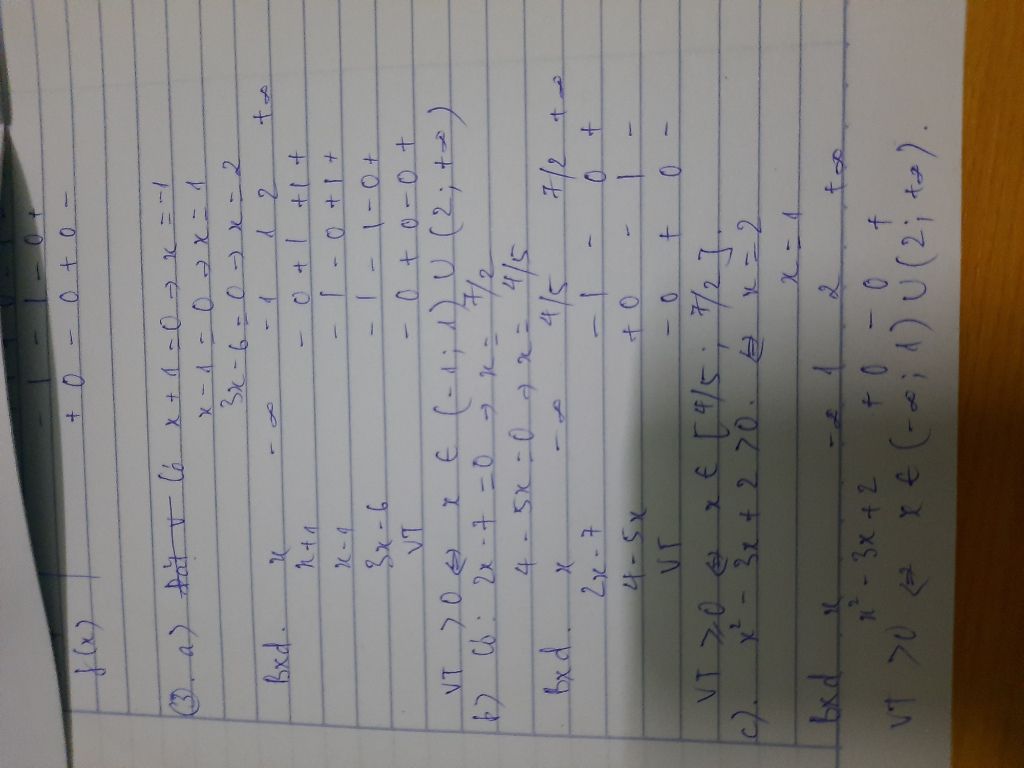 - 1 - 1 - 0 +
f(x) + 0 - 0 + 0 -
③. a) Có x + 1 = 0 → x = -1
x - 1 = 0 → x = 1
3x - 6 = 0 → x = 2
Bxd. x -∞ -1 1 2 +∞
x+1 - 0 + | + | +
x-1 - | - 0 + | +
3x-6 - | - | - 0 +
VT - 0 + 0 - 0 +
VT > 0 ⇔ x ∈ (-1; 1) ∪ (2; +∞)
b) Có: 2x - 7 = 0 → x = 7/2
4 - 5x = 0 → x = 4/5
Bxd. x -∞ 4/5 7/2 +∞
2x-7 - | - 0 +
4-5x + 0 - | -
VT - 0 + 0 -
VT ≥ 0 ⇔ x ∈ [4/5; 7/2].
c). x² - 3x + 2 > 0. ⇔ x = 2
x = 1
Bxd x -∞ 1 2 +∞
x² - 3x + 2 + 0 - 0 +
VT > 0 ⇔ x ∈ (-∞; 1) ∪ (2; +∞).